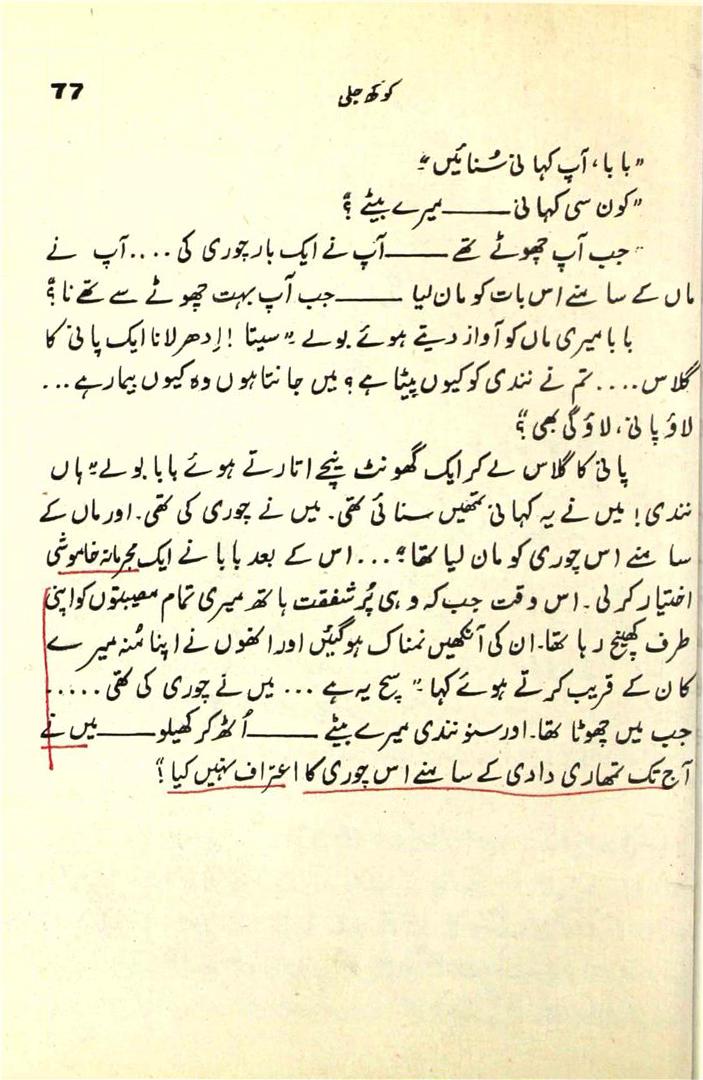 77
کوکھ جلی
"بابا، آپ کہانی سُنائیں"۔
"کون سی کہانی ——— میرے بیٹے؟"
"جب آپ چھوٹے تھے ——— آپ نے ایک بار چوری کی .... آپ نے
ماں کے سامنے اس بات کو مان لیا ——— جب آپ بہت چھوٹے سے تھے نا؟"
بابا میری ماں کو آواز دیتے ہوئے بولے "سیتا! اِدھر لانا ایک پانی کا
گلاس .... تم نے نندی کو کیوں پیٹا ہے؟ میں جانتا ہوں وہ کیوں بیمار ہے ...
لاؤ پانی، لاؤ گی بھی؟"
پانی کا گلاس لے کر ایک گھونٹ نیچے اتارتے ہوئے بابا بولے "ہاں
نندی! میں نے یہ کہانی تمھیں سنائی تھی۔ میں نے چوری کی تھی۔ اور ماں کے
سامنے اس چوری کو مان لیا تھا"... اس کے بعد بابا نے ایک مجرمانہ خاموشی
اختیار کر لی۔ اس وقت جب کہ وہی پُر شفقت ہاتھ میری تمام مصیبتوں کو اپنی
طرف کھینچ رہا تھا۔ ان کی آنکھیں نمناک ہو گئیں اور انھوں نے اپنا مُنہ میرے
کان کے قریب کرتے ہوئے کہا۔ "سچ یہ ہے ... میں نے چوری کی تھی .....
جب میں چھوٹا تھا۔ اور سنو نندی میرے بیٹے ——— اُٹھ کر کھیلو ——— میں نے
آج تک تمھاری دادی کے سامنے اس چوری کا اعتراف نہیں کیا؟"